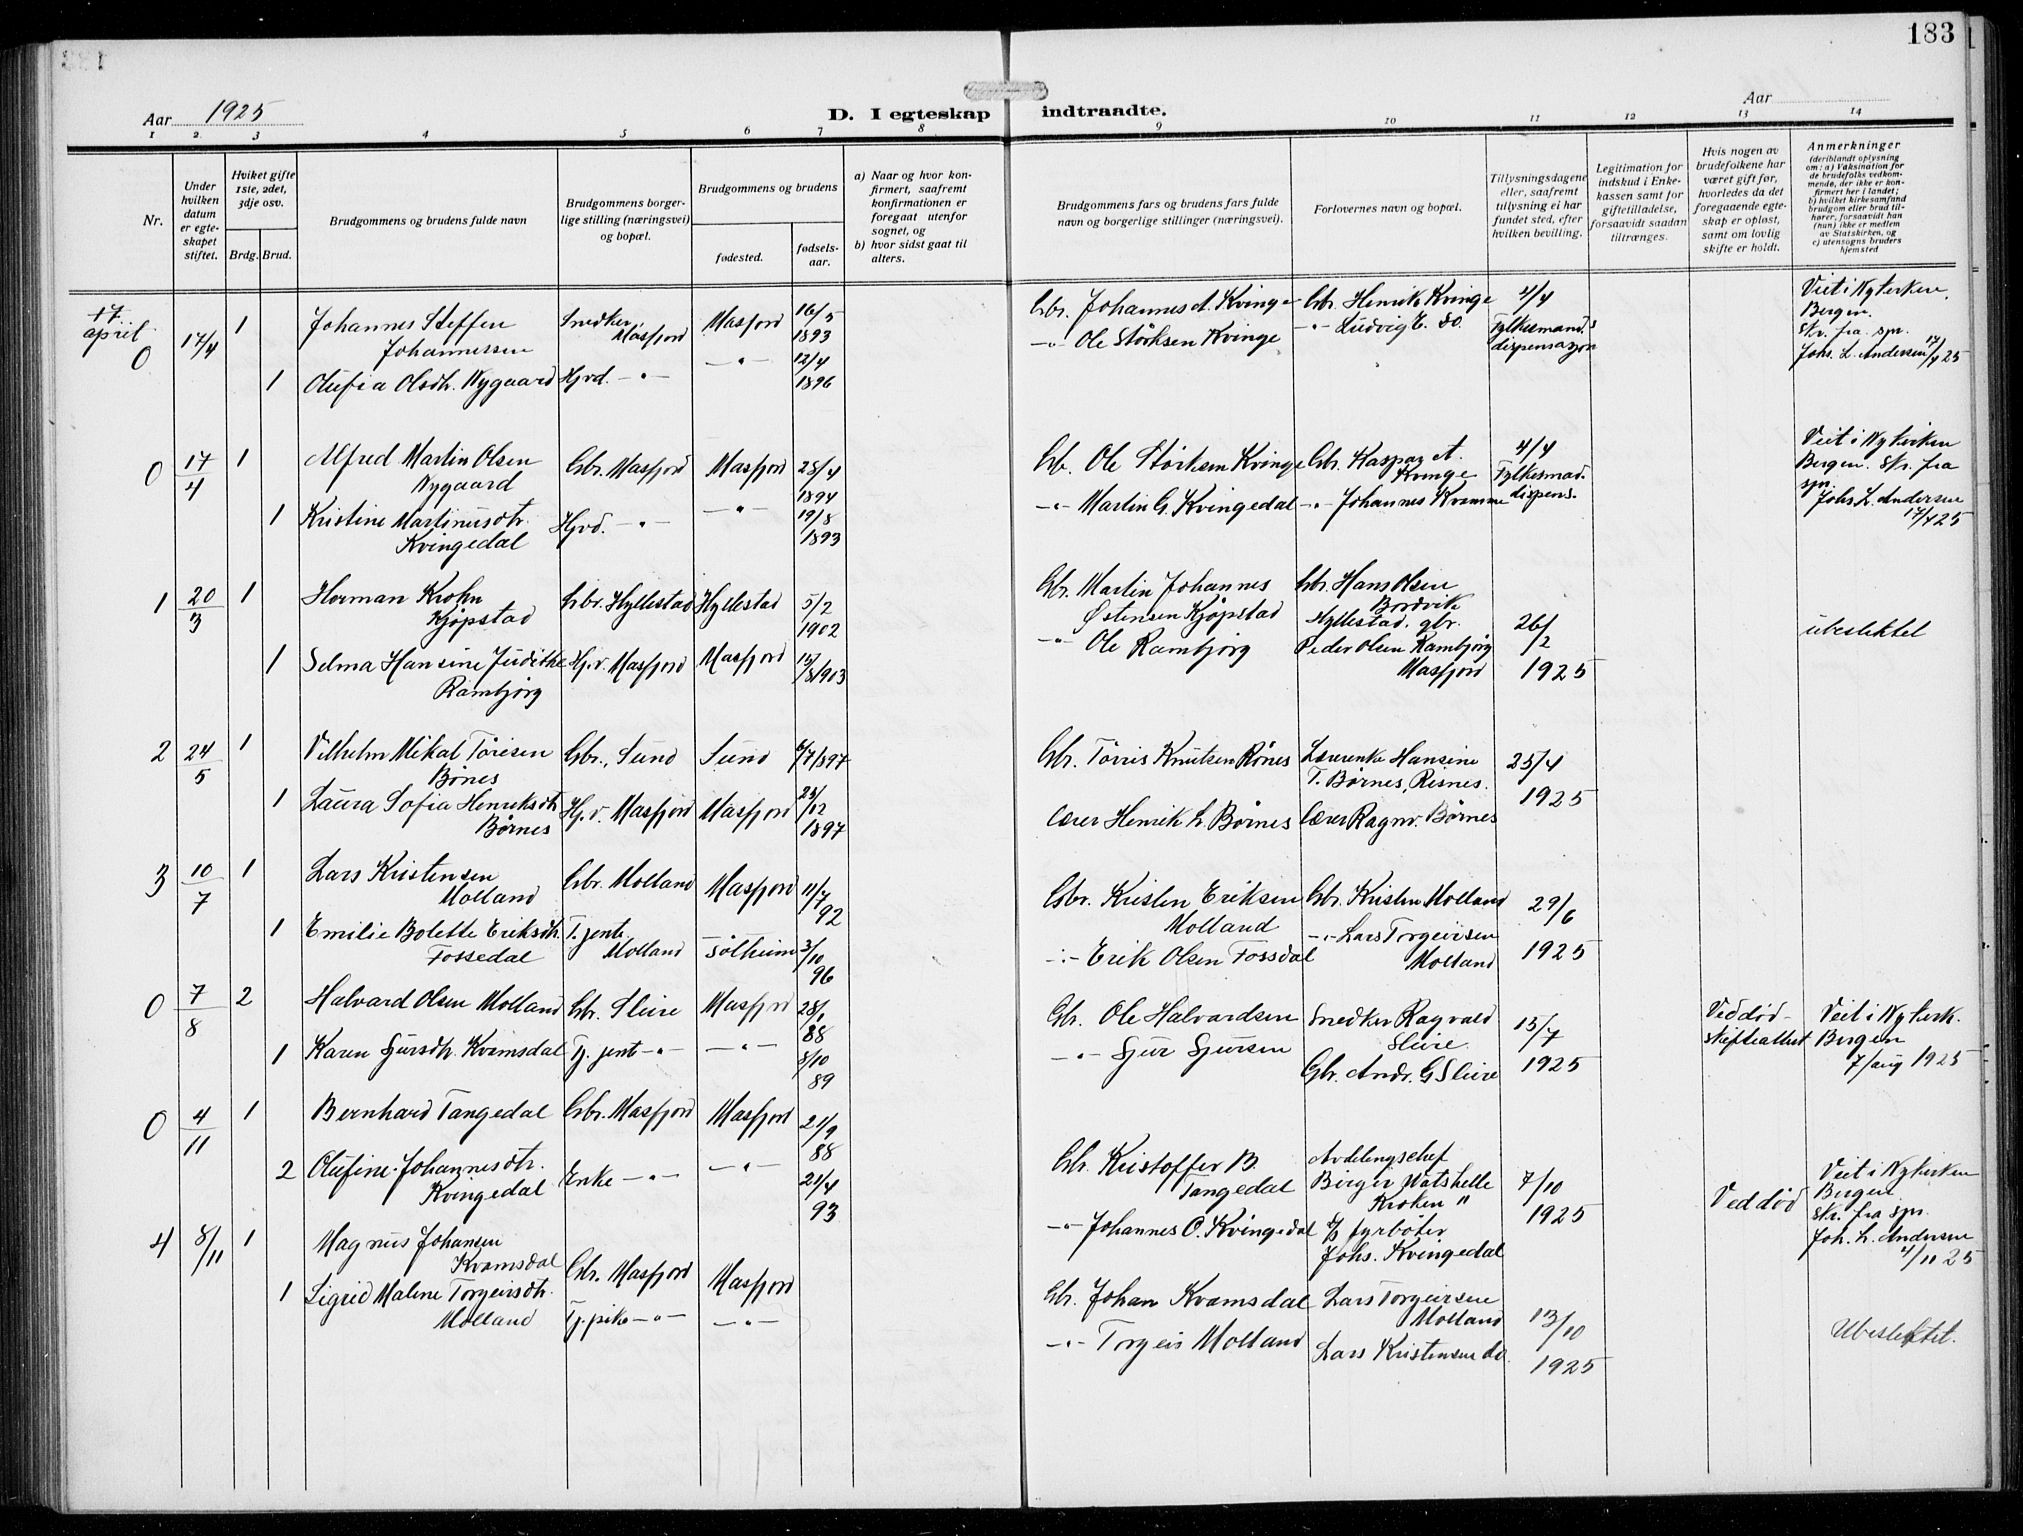 183
Aar 1925
D. I egteskap indtraadte.
Aar
1 2 3 4 5 6 7 8 9 10 11 12 13 14
Nr.
Under hvilken datum er egteskapet stiftet.
Hviket gifte 1ste, 2det, 3dje osv.
Brdg. Brud.
Brudgommens og brudens fulde navn
Brudgommens borgerlige stilling (næringsvei) og bopæl.
Brudgommens og brudens
fødested.
fødselsaar.
a) Naar og hvor konfirmert, saafremt konfirmationen er foregaat utenfor sognet, og
b) hvor sidst gaat til alters.
Brudgommens fars og brudens fars fulde navn og borgerlige stillinger (næringsvei).
Forlovernes navn og bopæl.
Tillysningsdagene eller, saafremt tillysning ei har fundet sted, efter hvilken bevilling.
Legitimation for indskud i Enkekassen samt for giftetilladelse, forsaavidt saadan tiltrænges.
Hvis nogen av brudefolkene har været gift før, hvorledes da det foregaaende egteskap er opløst, samt om lovlig skifte er holdt.
Anmerkninger
(deriblandt oplysning om: a) Vaksination for de brudefolks vedkommende, der ikke er konfirmert her i landet; b) hvilket kirkesamfund brudgom eller brud tilhører, forsaavidt han (hun) ikke er medlem av Statskirken, og c) utensogns bruders hjemsted
17 april
0 17/4 1 Johannes Steffen Johannessen Snedker, Masfjord Masfjord 16/5 1893
1 Olufia Olsdtr. Nygaard Hjvd. -"- -"- 12/4 1896
Gbr. Johannes A. Kvinge Gbr. Henrik Kvinge 4/4
-"- Ole Størksen Kvinge -"- Ludvig E. do. Fylkesmand.s dispensasjon
Viet i Nykirken, Bergen. Skr. fra spr. Johs. L. Andersen 17/4 25
0 17/4 1 Alfred Martin Olsen Nygaard Gbr. Masfjord Masfjord 28/4 1894
1 Kristine Martinusdtr. Kvingedal Hjvd. -"- -"- 19/8 1893
Gb. Ole Størksen Kvinge Gbr. Kaspar A. Kvinge 4/4 Fylkesmad. dispens.
-"- Martin G. Kvingedal -"- Johannes Kvamme
Viet i Nykirken Bergen. Skr. fra spr. Johs. L. Andersen 17/4 25
1 20/3 1 Herman Krohn Kjøpstad Gbr. Hyllestad Hyllestad 5/2 1902
1 Selma Hansine Judithe Rambjørg Hj.v. Masfjord Masfjord 15/8 1903
Gbr. Martin Johannes Østensen Kjøpstad Gbr. Hans Olsen Bordvik Hyllestad. gbr.
-"- Ole Rambjørg Peder Olsen Rambjørg Masfjord
26/2 1925
ubeslektet
2 24/5 1 Vilhelm Mikal Tørisen Bønes Gbr., Sund Sund 6/7 1897
1 Laura Sofia Henriksdtr. Børnes Hj.v. Masfjord Masfjord 23/12 1897
Gbr. Tørris Knutsen Rønes Lærerenke Hansine T. Børnes, Risnes. 25/4 1925
Lærer Henrik L. Børnes Lærer Ragnv. Børnes
3 10/7 1 Lars Kristensen Molland Gbr. Molland Masfjord 11/7 92
1 Emilie Bolette Eriksdtr. Fossedal T. jente Molland Solheim 3/10 96
Gbr. Kristen Eriksen Molland Gbr. Kristen Molland 29/6
-"- Erik Olsen Fossdal -"- Lars Torgeirsen Molland 1925
0 7/8 2 Halvard Olsen Molland Gbr. Sleire Masfjord 28/1 88
1 Karen Sjursdtr. Kvamsdal Tj. jent -"- -"- 8/10 89
Gbr. Ole Halvardsen Snedker Ragvald Sleire. 15/7
-"- Sjur Sjursen Gbr. Andr. G Sleire 1925
Veddød-skifteattest Viet i Nykirk. Bergen 7/aug 1925
0 4/11 1 Bernhard Tangedal Gbr. Masfjord Masfjord 21/9 88
2 Olufine Johannesdtr. Kvingedal Enke -"- -"- 21/4 93
Gbr. Kristoffer B. Tangedal Avdelingschef Birger Matshelle Kroken " 7/10
-"- Johannes O. Kvingedal fyrbøter Johs. Kvingedal 1925
Ved død Viet i Nykirken Bergen Skr. fra spr. Joh. L. Andersen 4/11 25
4 8/11 1 Magnus Johansen Kvamsdal Gbr. Masfjord Masfjord
1 Sigrid Malene Torgeirsdtr. Molland Tj. pike -"- -"-
Gbr. Johan Kvamsdal Lars Torgeirsen Molland 13/10
-"- Torgeir Molland Lars Kristensen do. 1925
Ubeslektet.